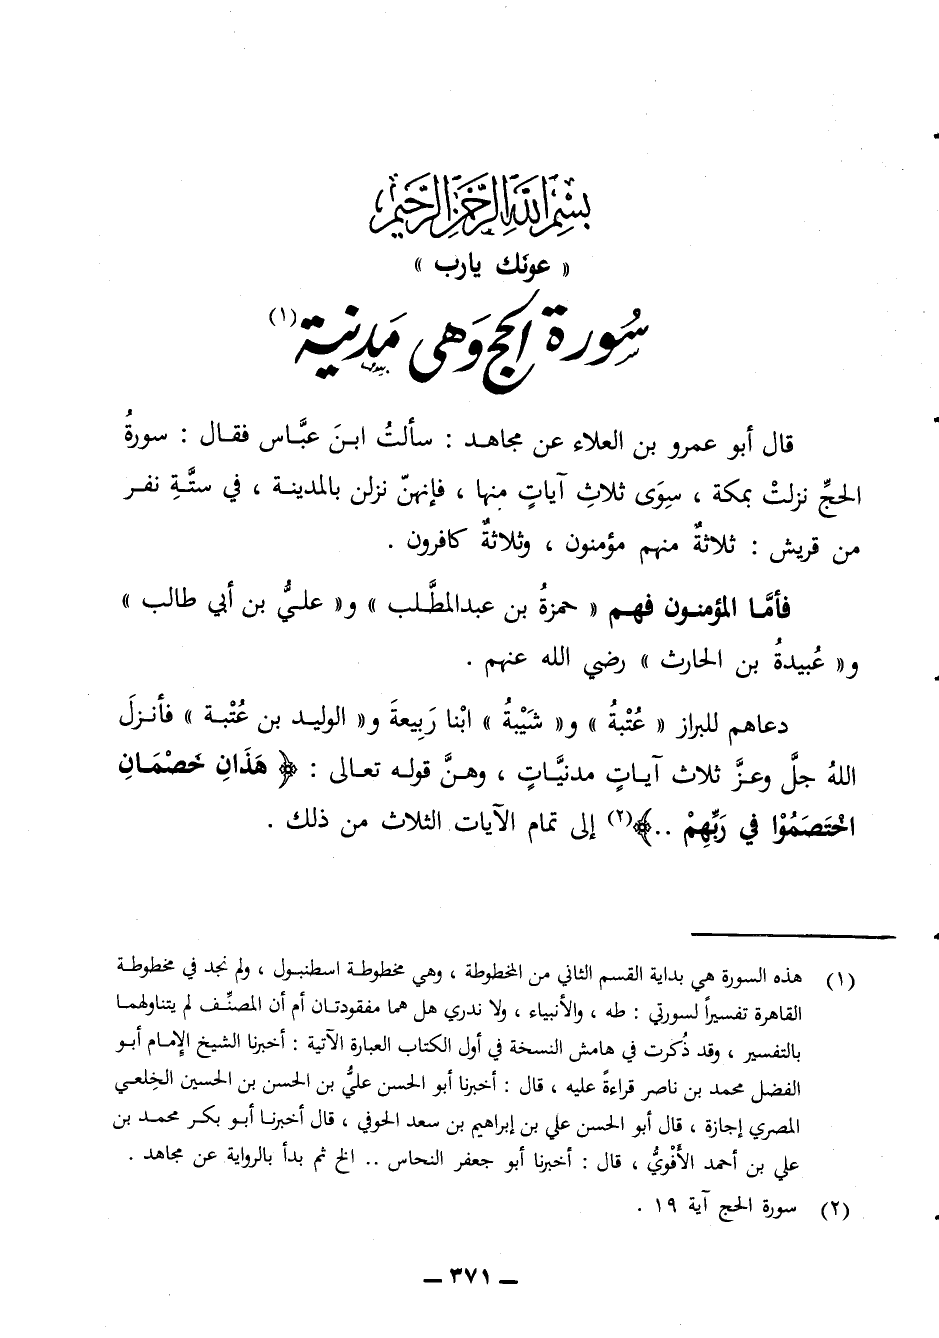 بسم الله الرحمن الرحيم
« عونَك يارب »
سُورة الحج وَهي مَدنية (١)
قال أبو عمرو بن العلاء عن مجاهد : سألتُ ابنَ عبَّاس فقال : سورةُ
الحجِّ نزلتْ بمكة ، سِوَى ثلاثِ آياتٍ منها ، فإنهنّ نزلن بالمدينة ، في ستَّةِ نفر
من قريش : ثلاثةٌ منهم مؤمنون ، وثلاثةٌ كافرون .
فأمَّا المؤمنون فهم « حمزةُ بن عبدالمطَّلب » و« عليُّ بن أبي طالب »
و« عُبيدةُ بن الحارث » رضي الله عنهم .
دعاهم للبراز « عُتْبةُ » و« شَيْبةُ » ابْنا رَبيعةَ و« الوليد بن عُتْبة » فأنزلَ
اللهُ جلَّ وعزَّ ثلاث آياتٍ مدنيَّاتٍ ، وهنَّ قوله تعالى : ﴿ هَذَانِ خَصْمَانِ
اخْتَصَمُوْا في رَبِّهِمْ ..﴾(٢) إلى تمام الآيات الثلاث من ذلك .
(١) هذه السورة هي بداية القسم الثاني من المخطوطة ، وهي مخطوطة اسطنبول ، ولم نجد في مخطوطة
القاهرة تفسيراً لسورتي : طه ، والأنبياء ، ولا ندري هل هما مفقودتان أم أن المصنِّف لم يتناولهما
بالتفسير ، وقد ذُكرت في هامش النسخة في أول الكتاب العبارة الآتية : أخبرنا الشيخ الإمام أبو
الفضل محمد بن ناصر قراءةً عليه ، قال : أخبرنا أبو الحسن عليُّ بن الحسن بن الحسين الخِلعي
المصري إجازة ، قال أبو الحسن علي بن إبراهيم بن سعد الحوفي ، قال أخبرنا أبو بكر محمد بن
علي بن أحمد الأُفْويُّ ، قال : أخبرنا أبو جعفر النحاس .. الخ ثم بدأ بالرواية عن مجاهد .
(٢) سورة الحج آية ١٩ .
ـ ٣٧١ ـ